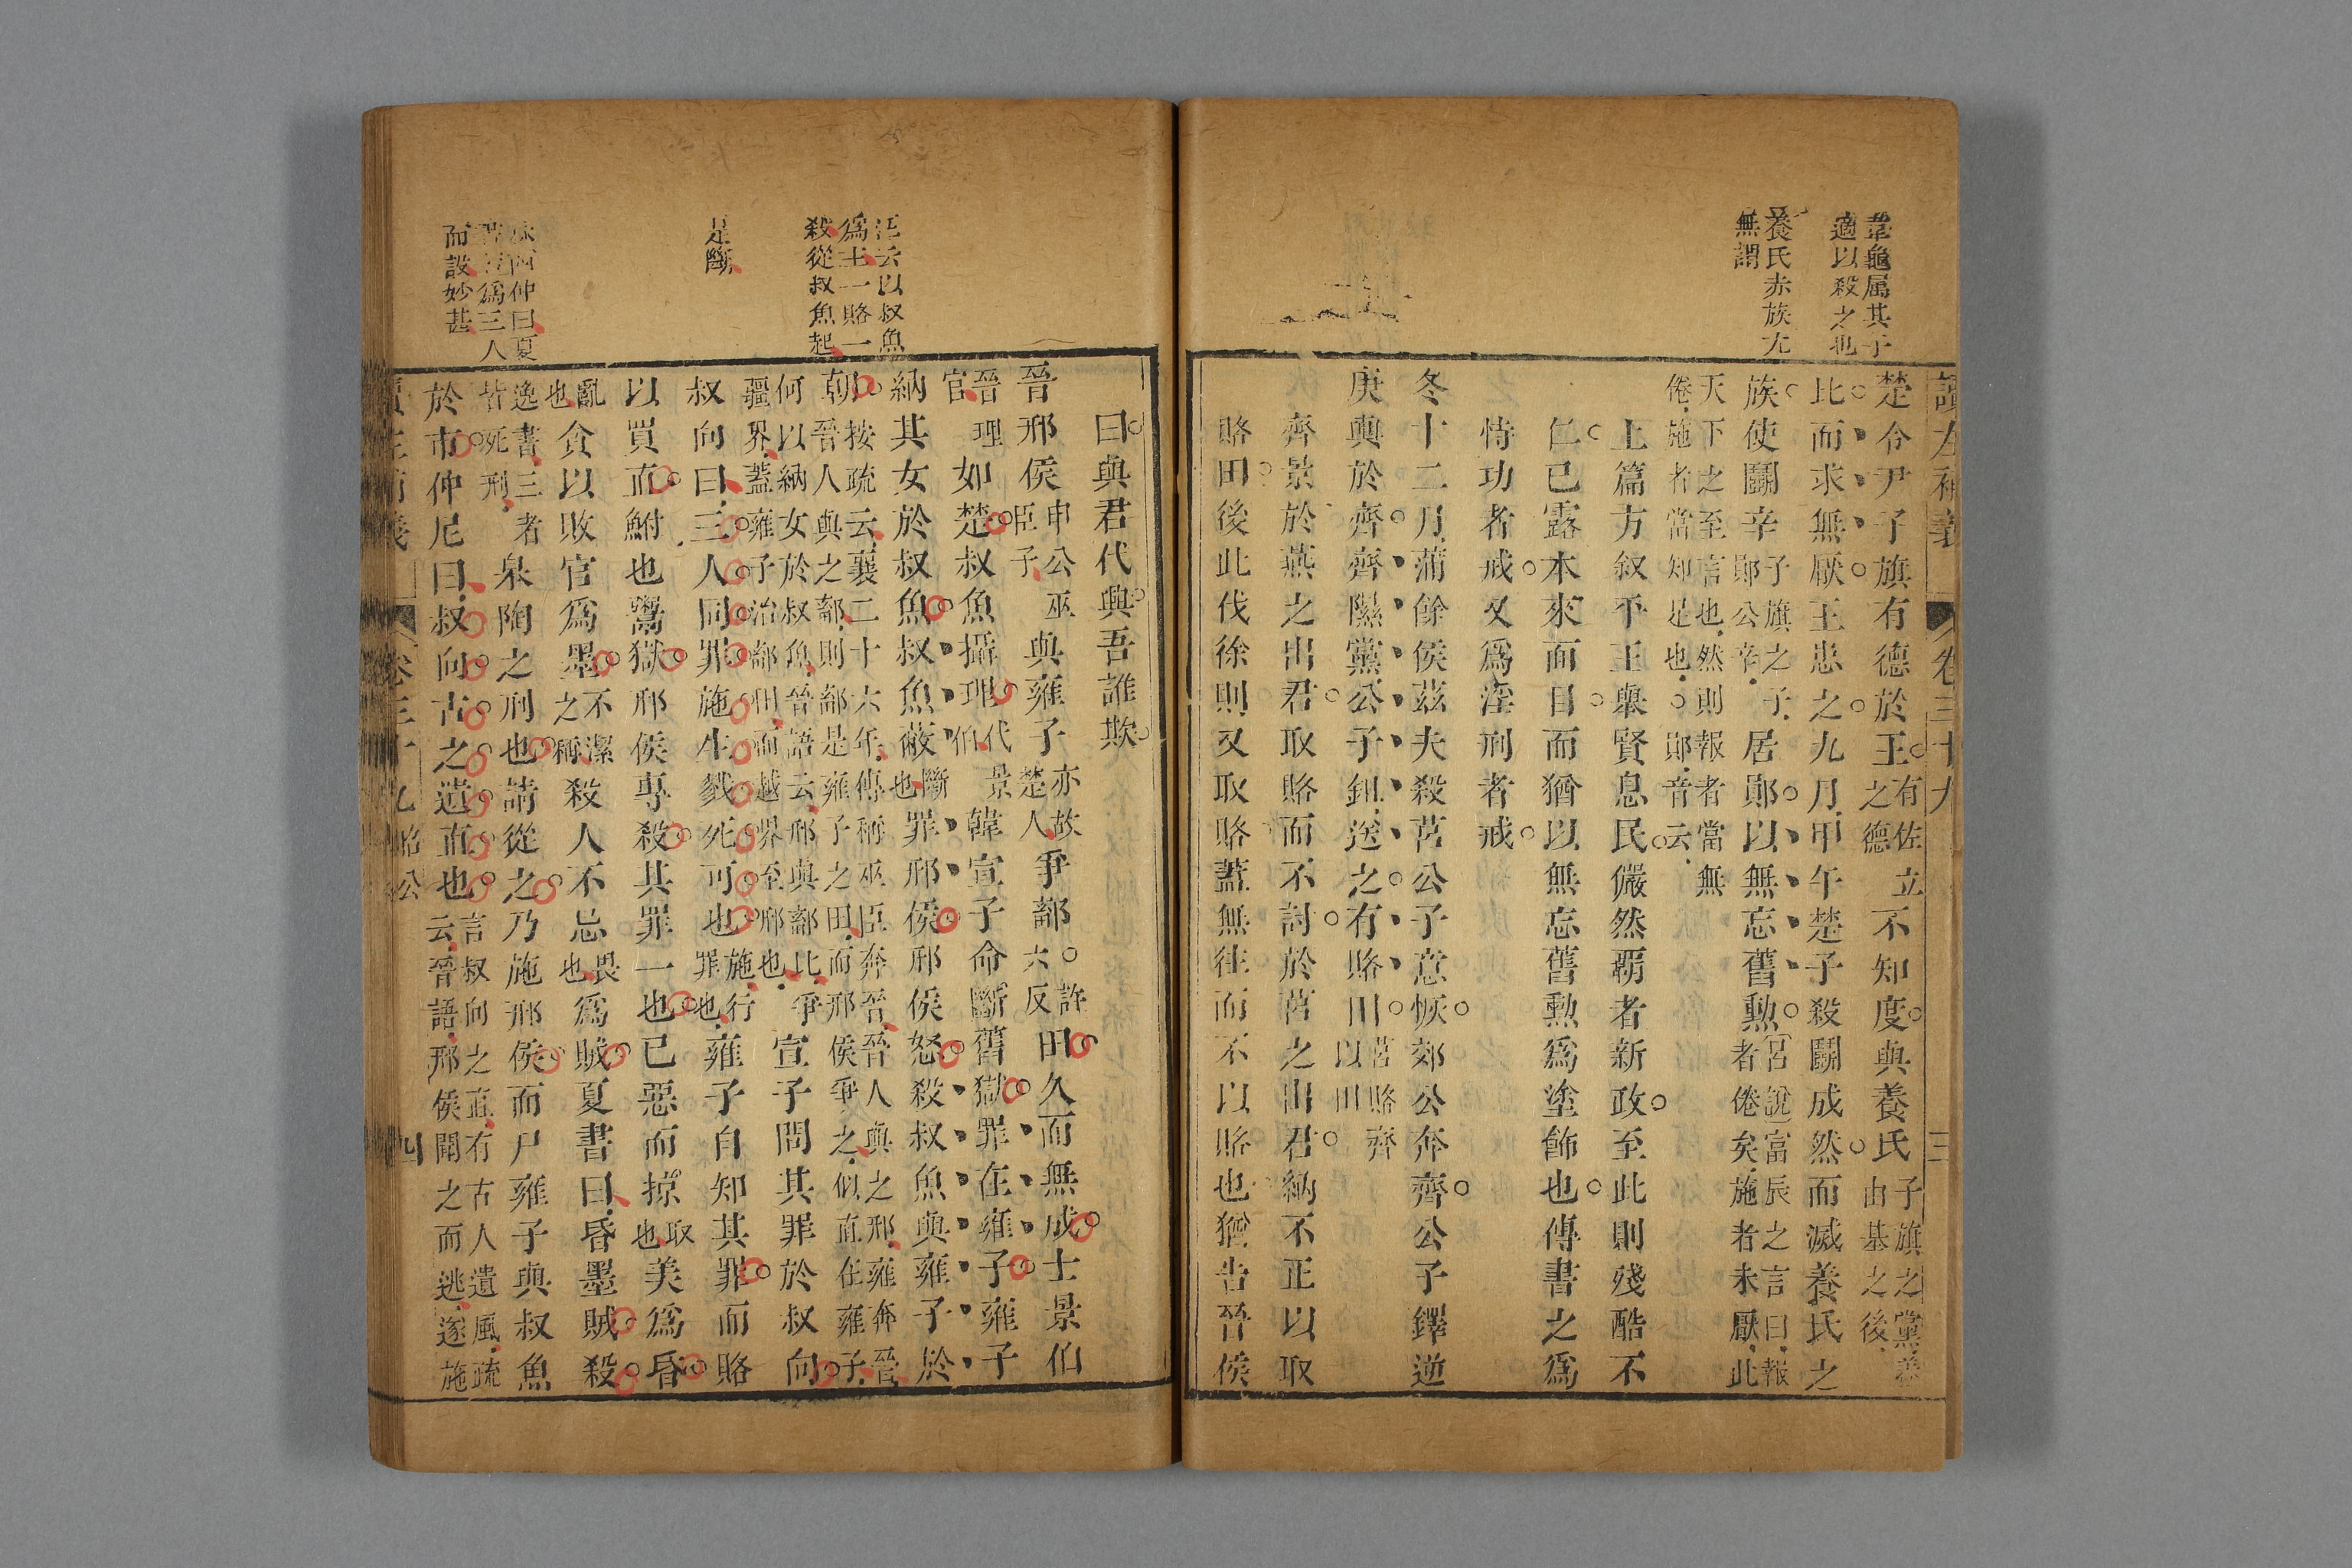 讀左補義
卷三十九
三
韋龜属其子
適以殺之也
養氏赤族尤
無謂
楚令尹子旗有德於王有佐立之德不知度與養氏子旗之黨養由基之後
比而求無厭王患之九月甲午楚子殺鬭成然而滅養氏之
族使鬭辛子旗之子鄖公辛居鄖以無忘舊勲呂說富辰之言曰報者倦矣施者未厭此
天下之至言也然則報者當無倦施者當知是也鄖音云
上篇方叙平王舉賢息民儼然覇者新政至此則殘酷不
仁已露本來面目而猶以無忘舊勲爲塗飾也傳書之爲
恃功者戒又爲淫刑者戒
冬十二月蒲餘侯茲夫殺莒公子意恢郊公奔齊公子鐸逆
庚輿於齊齊隰黨公子鉏送之有賂田莒賂齊以田
齊景於燕之出君取賂而不討於莒之出君納不正以取
賂田後此伐徐則又取賂蓋無往而不以賂也猶告晉侯
曰與君代興吾誰欺
汪云以叔魚
爲主一賂一
殺從叔魚起
是斷
仲曰夏
爲三人
而設妙甚
晉邢侯申公巫臣子與雍子亦故楚人爭鄐許六反田久而無成士景伯
晉理官如楚叔魚攝理代景伯韓宣子命斷舊獄罪在雍子雍子
納其女於叔魚叔魚蔽斷也罪邢侯邢侯怒殺叔魚與雍子於
朝按疏云襄二十六年傳稱巫臣奔晉晉人與之邢雍子奔晉晉人與之鄐則鄐是雍子之田而邢侯爭之似直在雍子
何以納女於叔魚晉語云邢與鄐比爭疆界蓋雍子治鄐田而越界至邢也宣子問其罪於叔向
叔向曰三人同罪施生戮死可也施行罪也雍子自知其罪而賂
以買直鮒也鬻獄邢侯專殺其罪一也已惡而掠取也美爲昏
亂也貪以敗官爲墨不潔之稱殺人不忌畏也爲賊夏書曰昏墨賊殺
逸書三者皆死刑皋陶之刑也請從之乃施邢侯而尸雍子與叔魚
於市仲尼曰叔向古之遺直也言叔向之直有古人遺風疏云晉語邢侯聞之而逃遂施
讀左補義
卷三十九
昭公
四